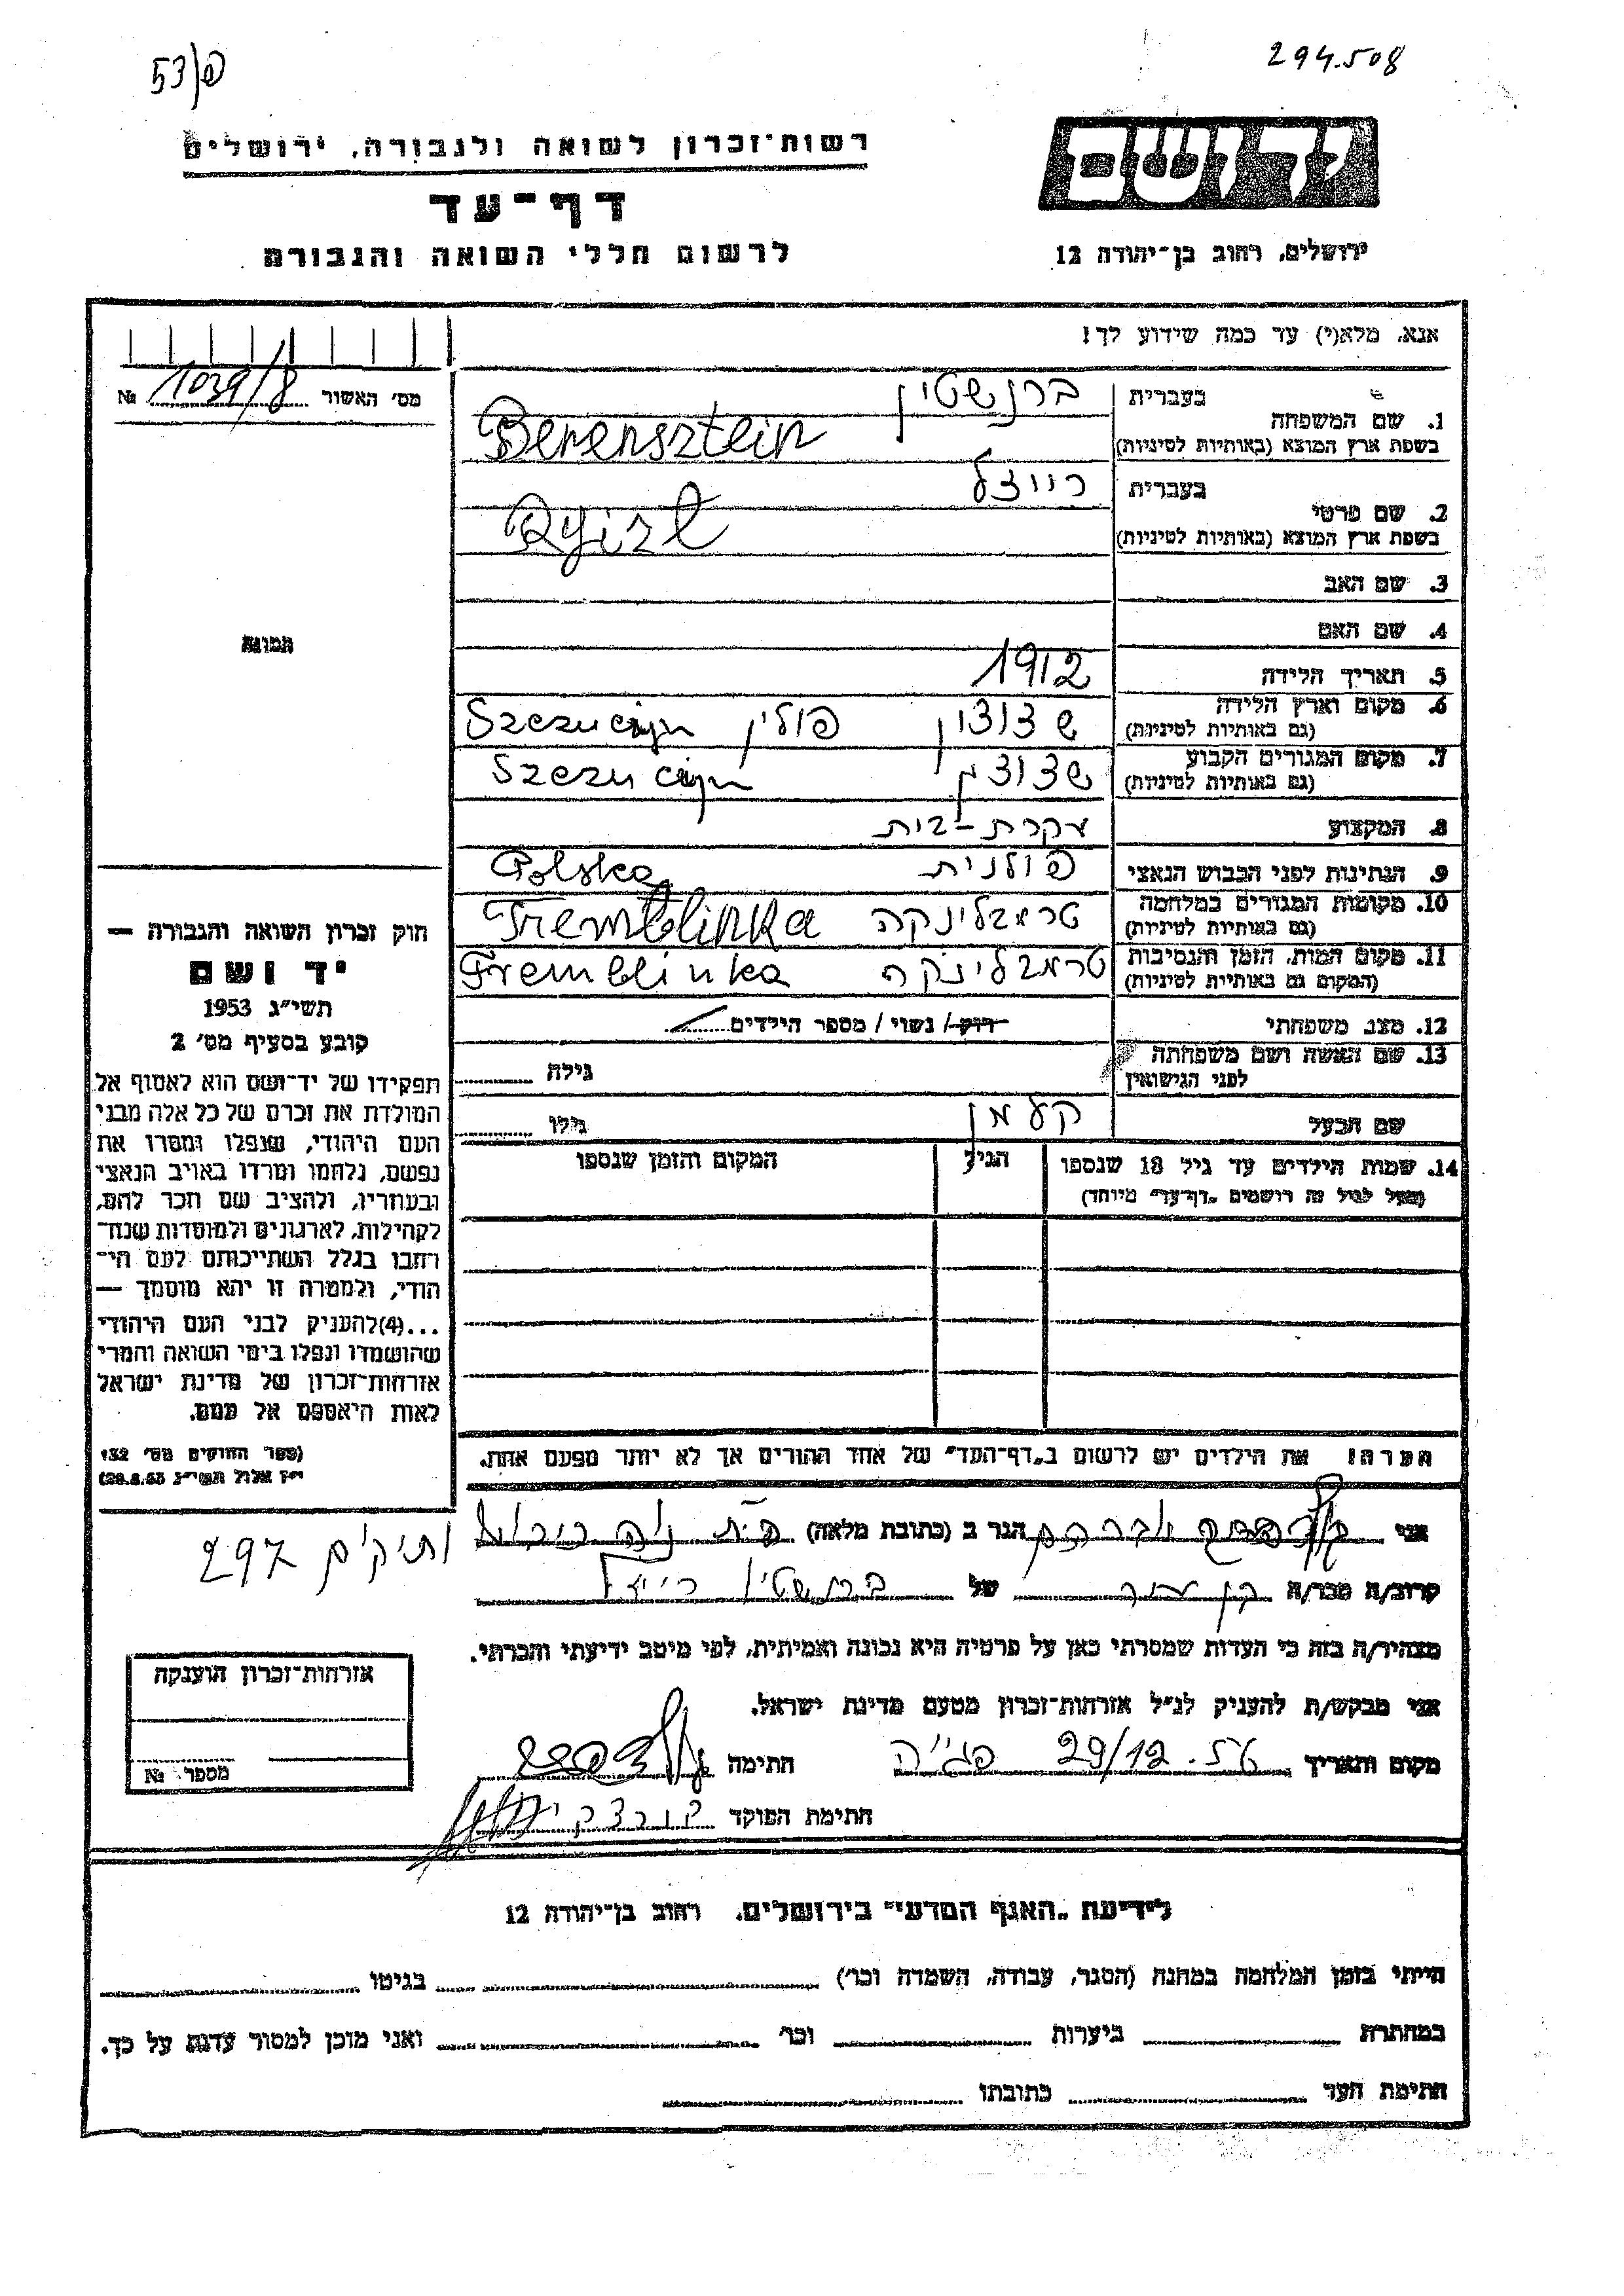 294.508
53/פ
יד ושם
רשות־זכרון לשואה ולגבורה, ירושלים
דף־עד
לרשום חללי השואה והגבורה
ירושלים, רחוב בן־יהודה 12
אנא, מלא(י) עד כמה שידוע לך!
מס׳ האשור 1039/8 №
בעברית ברנשטין
1. שם המשפחה
בשפת ארץ המוצא (באותיות לטיניות) Berensztein
בעברית רייזל
2. שם פרטי
בשפת ארץ המוצא (באותיות לטיניות) Ryizl
3. שם האב
4. שם האם
תמונה
5. תאריך הלידה 1912
6. מקום וארץ הלידה שצוצין פולין Szczucyn
(גם באותיות לטיניות)
7. מקום המגורים הקבוע שצוצין Szczucyn
(גם באותיות לטיניות)
8. המקצוע עקרת-בית
9. הנתינות לפני הכבוש הנאצי פולנית Polska
10. מקומות המגורים במלחמה טרמבלינקה Tremblinka
(גם באותיות לטיניות)
11. מקום המות, הזמן והנסיבות טרמבלינקה Tremblinka
(המקום גם באותיות לטיניות)
12. מצב משפחתי רוק/ נשוי / מספר הילדים
13. שם האשה ושם משפחתה
לפני הנישואין גילה
שם הבעל קלמן גילו
14. שמות הילדים עד גיל 18 שנספו הגיל המקום והזמן שנספו
(מעל לגיל זה רושמים „דף־עד” מיוחד)
הערה: את הילדים יש לרשום ב„דף־העד” של אחד ההורים אך לא יותר מפעם אחת.
חוק זכרון השואה והגבורה —
יד ושם
תשי״ג 1953
קובע בסעיף מס׳ 2
תפקידו של יד־ושם הוא לאסוף אל
המולדת את זכרם של כל אלה מבני
העם היהודי, שנפלו ומסרו את
נפשם, נלחמו ומרדו באויב הנאצי
ובעוזריו, ולהציב שם וזכר להם,
לקהילות, לארגונים ולמוסדות שנח־
רבו בגלל השתייכותם לעם הי־
הודי, ולמטרה זו יהא מוסמך —
...(4)להעניק לבני העם היהודי
שהושמדו ונפלו בימי השואה והמרי
אזרחות־זכרון של מדינת ישראל
לאות היאספם אל עמם.
(ספר החוקים מס׳ 132
י״ז אלול תשי״ג 28.8.53)
אני אברהם הגר ב (כתובת מלאה)
ותיקים 297
קרוב/ה מכר/ה בן דוד של ברנשטין רייזל
מצהיר/ה בזה כי העדות שמסרתי כאן על פרטיה היא נכונה ואמיתית, לפי מיטב ידיעתי והכרתי.
אני מבקש/ת להעניק לנ״ל אזרחות־זכרון מטעם מדינת ישראל.
מקום ותאריך 29/12.56 חתימה
חתימת הפוקד
אזרחות־זכרון הוענקה
מספר №
לידיעת „האגף המדעי” בירושלים, רחוב בן־יהודה 12
הייתי בזמן המלחמה במחנה (הסגר, עבודה, השמדה וכר׳) בגיטו
במחתרת ביערות וכר׳ ואני מוכן למסור עדות על כך.
חתימת העד כתובתו